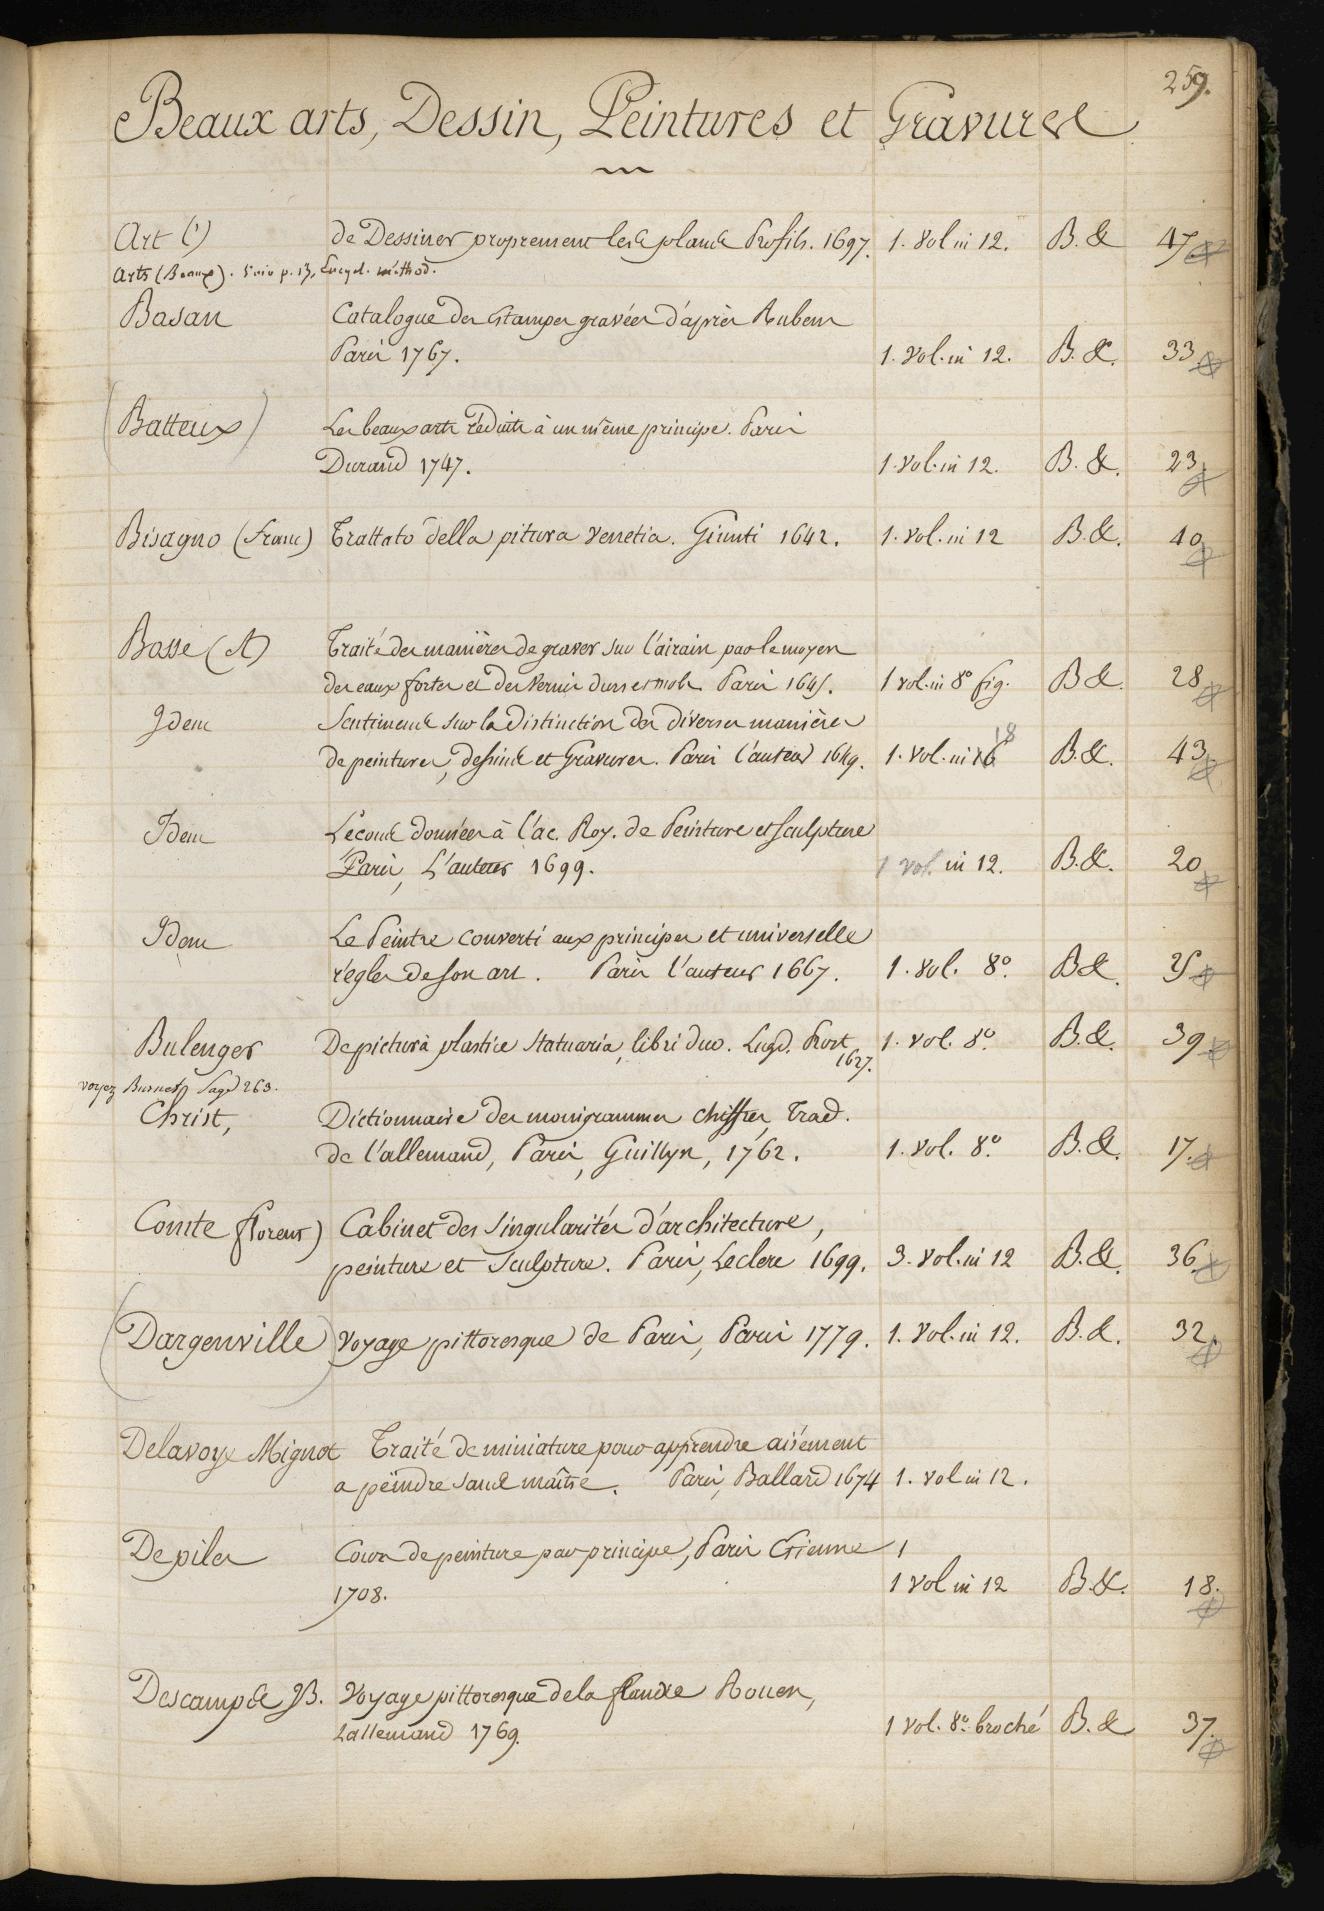 259.
Beaux arts, Dessin, Peintures et Gravures
Art (l') de Dessiner proprement les plans Profils. 1697. 1. Vol in 12. B. & 47
Arts (Beaux). p. 13, Encycl. méthod.
Basan Catalogue des Estampes gravées d'après Rubens
Paris 1767. 1. Vol. in 12. B. &. 33
(Batteux) Les beaux arts réduits à un même principe. Paris
Durand 1747. 1. Vol. in 12. B. &. 23
Bisagno (Franc) Trattato della pitura Venetia. Giunti 1642. 1. Vol. in 12 B. &. 40
Bosse (A) Traité des manières de graver sur l'airain par le moyen
des eaux fortes et des Vernis durs et mols Paris 1645. 1 vol. in 8º fig. B & 28
Idem Sentiments sur la Distinction des diverses manières
de peintures, dessins et Gravures. Paris l'auteur 1649. 1. Vol. in 16 18 B. &. 43
Idem Leçons données à l'ac. Roy. de Peinture et Sculpture
Paris, L'auteur 1699. 1 vol. in 12. B. &. 20
Idem Le Peintre converti aux principes et universelle
règles de son art. Paris l'auteur 1667. 1. Vol. 8º. B &. 25
Bulenger De pictura plastice Statuaria, libri duo. Lugd. Prost 1627. 1. Vol. 8º. B. &. 39
voyez Burnet Page 263.
Christ, Dictionnaire des monigrammes chiffres, Trad.
de l'allemand, Paris, Guillyn, 1762. 1. Vol. 8º. B. &. 17.
Comte florent) Cabinet des Singularités d'architecture,
peinture et Sculpture. Paris, Leclerc 1699. 3. Vol. in 12 B. &. 36
(Dargenville) Voyage pittoresque de Paris, Paris 1779. 1. Vol. in 12. B. &. 32.
Delavoye Mignot Traité de miniature pour apprendre aisément
a peindre sans maître. Paris, Ballard 1674 1. vol in 12.
Depiles Cours de peinture par principe, Paris Etienne 1
1708. 1 Vol in 12 B. &. 18.
Descamps JB. Voyage pittoresque de la flandre Rouen,
Lallemand 1769. 1 Vol. 8º. broché B. & 37.